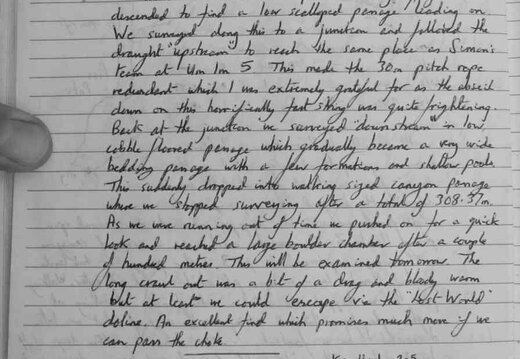 descended to find a low scalloped passage leading on.
We surveyed along this to a junction and followed the
draught "upstream" to reach the same place as Simon's
team at Um Im 5. This made the 30m pitch rope
redundant which I was extremely grateful for as the abseil
down on this horrifically fast string was quite frightening.
Back at the junction we surveyed "downstream" in low
cobble floored passage which gradually became a very wide
bedding passage with a few formations and shallow pools.
This suddenly dropped into walking sized canyon passage
where we stopped surveying after a total of 308.37m.
As we were running out of time we pushed on for a quick
look and reached a large boulder chamber after a couple
of hundred metres. This will be examined tomorrow. The
long crawl out was a bit of a drag and bloody warm
but at least we could escape via the "Lost World"
doline. An excellent find which promises much more if we
can pass the choke.